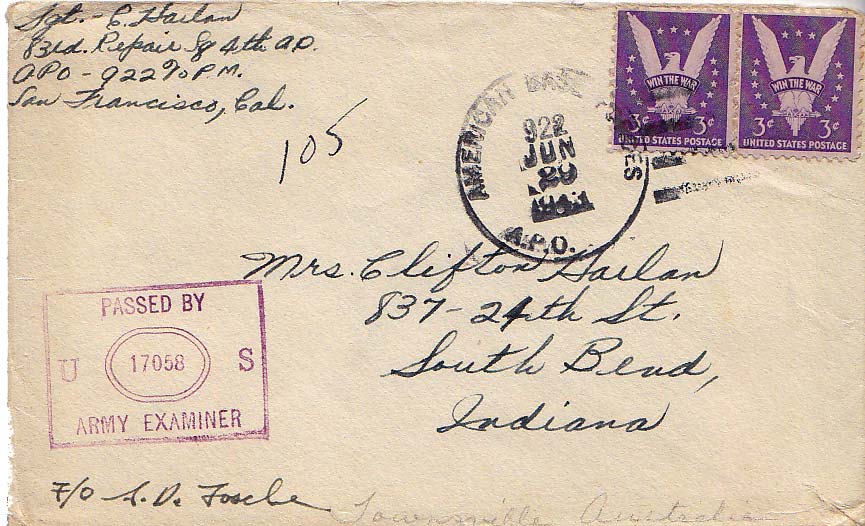 Sgt. E. Harlan
83rd. Repair Sq 4th A.D.
APO - 922 % P.M.
San Francisco, Cal.
105
AMERICAN BASE FORCES
922
JUN
29
1943
A.P.O.
WIN THE WAR
3¢ 3¢
UNITED STATES POSTAGE
WIN THE WAR
3¢ 3¢
UNITED STATES POSTAGE
Mrs. Clifton Harlan
837-24th St.
South Bend,
Indiana
PASSED BY
U 17058 S
ARMY EXAMINER
F/O
Townsville Australia